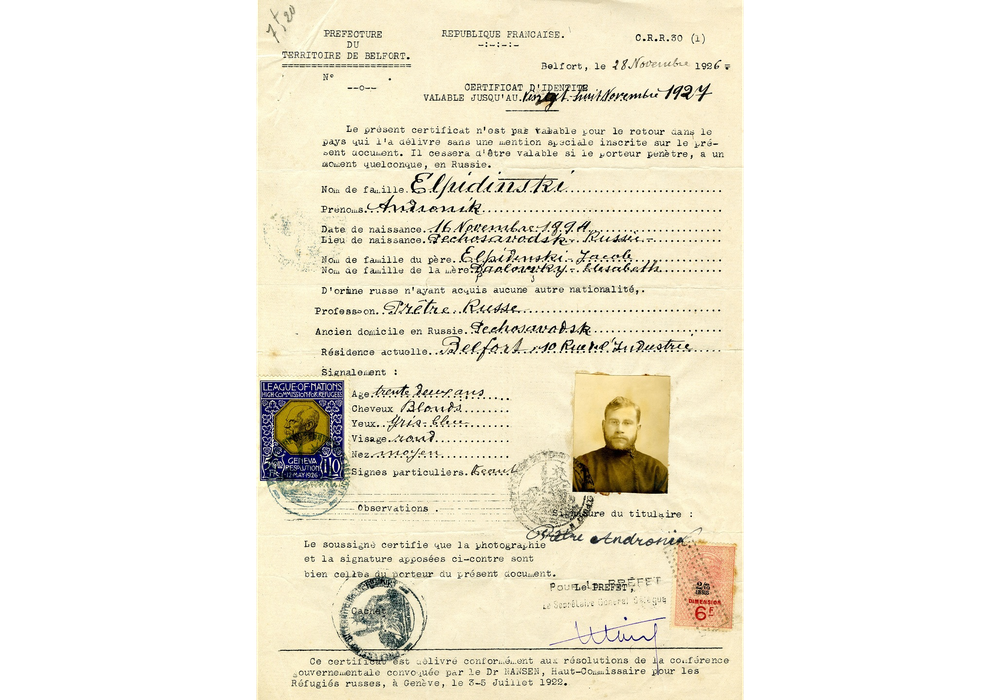 7+20
PREFECTURE
DU
TERRITOIRE DE BELFORT.
REPUBLIQUE FRANCAISE.
-:-:-:-
C.R.R.30 (1)
Belfort, le 28 Novembre 1926
N° .
--o--
CERTIFICAT D'IDENTITE
VALABLE JUSQU'AU vingt-huit Novembre 1927
Le présent certificat n'est pas valable pour le retour dans le
pays qui l'a délivré sans une mention spéciale inscrite sur le pré-
sent document. Il cessera d'être valable si le porteur penètre, a un
moment quelconque, en Russie.
Nom de famille. Elpidinski
Prénoms. Andronik
Date de naissance. 16 Novembre 1894
Lieu de naissance. Pechosavodsk - Russie -
Nom de famille du père. Elpidenski - Jacob
Nom de famille de la mère. Paolovsky - Elisabeth
D'orine russe n'ayant acquis aucune autre nationalité,.
Profession. Prêtre Russe
Ancien domicile en Russie. Pechosavodsk
Résidence actuelle. Belfort - 10 Rue de l'Industrie
Signalement :
Age. trente deux ans
Cheveux Blonds
Yeux. gris-bleu
Visage. rond
Nez. moyen
Signes particuliers.
LEAGUE·OF·NATIONS
HIGH COMMISSION FOR REFUGEES
GENEVA
RESOLUTION
12 MAY 1926
Observations .
Signature du titulaire :
Prêtre Andronik
Le soussigné certifie que la photographie
et la signature apposées ci-contre sont
bien celles du porteur du présent document.
Pour le PRÉFET
Le PREFET,
Le Secrétaire Général Délégué
Cachet
DIMENSION
6F
Ce certificat est délivré conformément aux résolutions de la conférence
gouvernementale convoquée par le Dr NANSEN, Haut-Commissaire pour les
Réfugiés russes, à Genève, le 3-5 Juillet 1922.